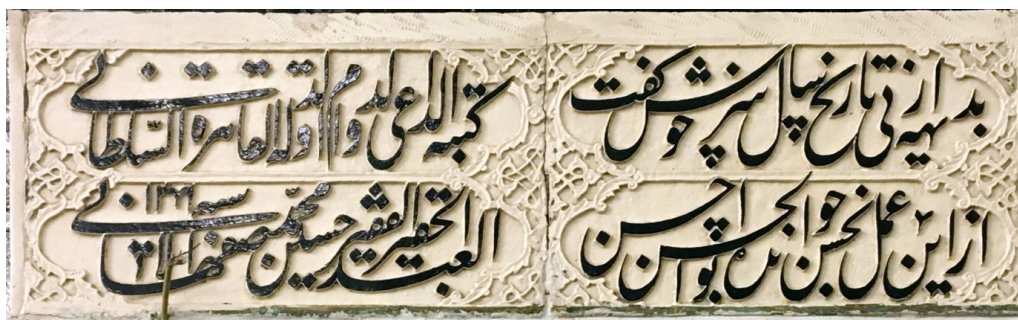 بدیهه از پی تاریخ سال سرخوش گفت
ازین عمل بحسن خواند بوالحسن احسن
کتبه الداعی لدوام الدولة القاهرة السلطانی
العبد الحقیر الفقیر حسین اصفهانی سنه